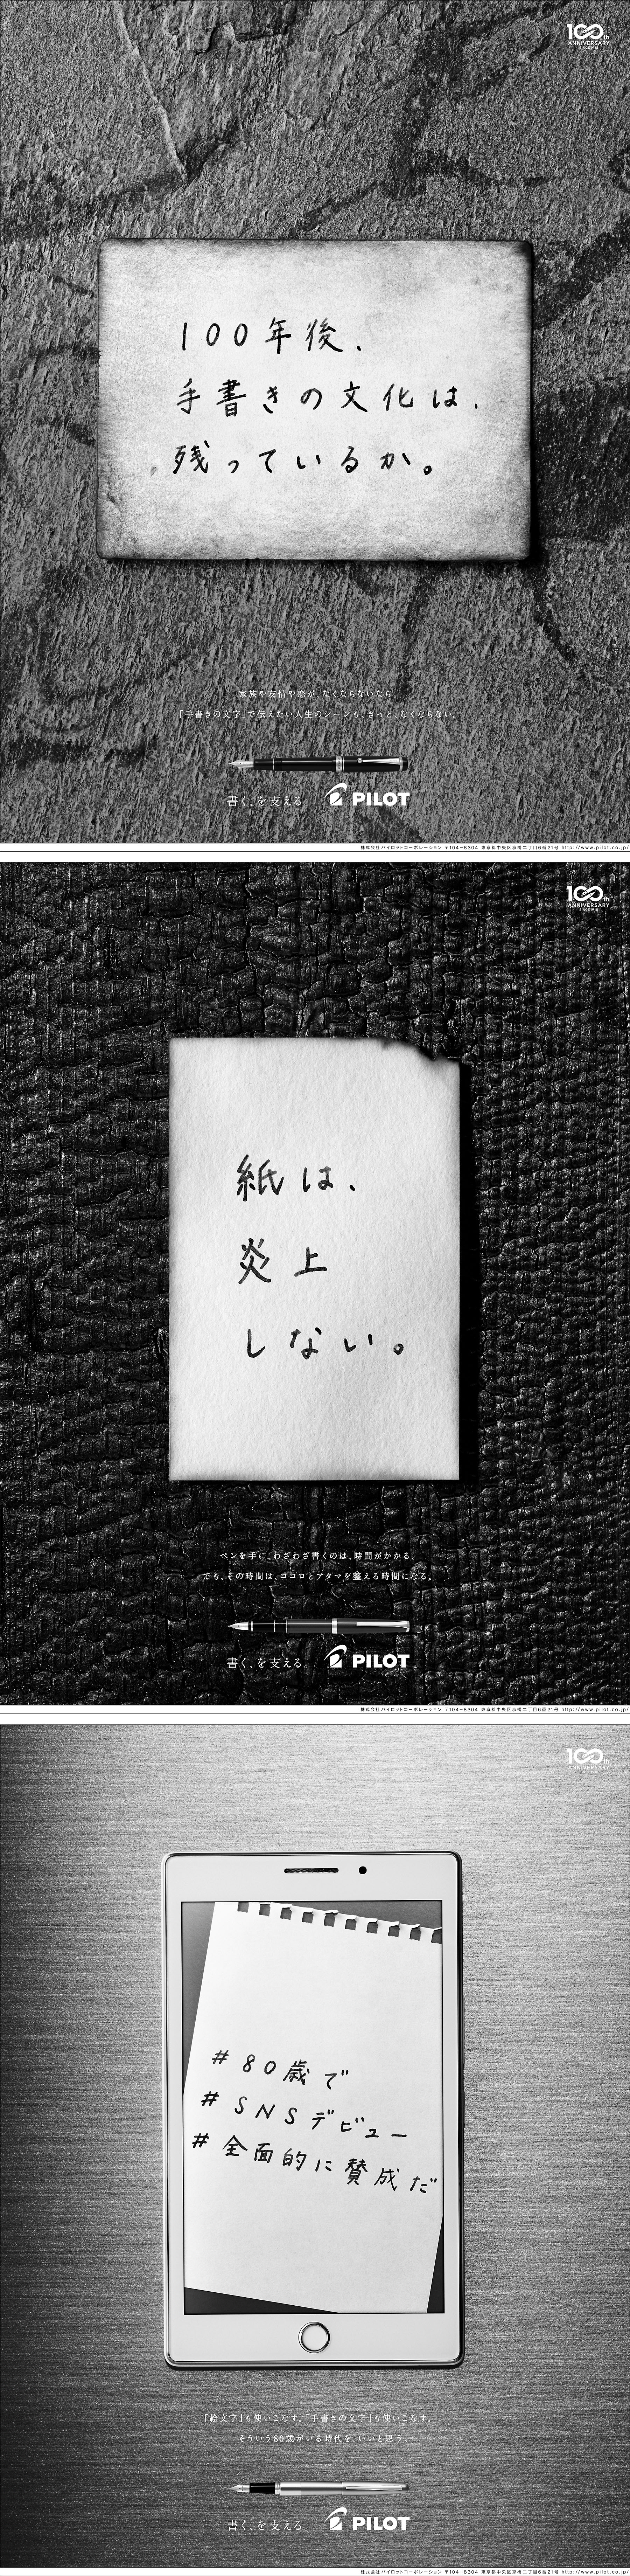 100th
ANNIVERSARY
100年後、
手書きの文化は、
残っているか。
家族や友情や恋が、なくならないなら、
「手書きの文字」で伝えたい人生のシーンも、きっと、なくならない。
書く、を支える。
PILOT
株式会社パイロットコーポレーション 〒104-8304 東京都中央区京橋二丁目6番21号 http://www.pilot.co.jp/
100th
ANNIVERSARY
紙は、
炎上
しない。
ペンを手に、わざわざ書くのは、時間がかかる。
でも、その時間は、ココロとアタマを整える時間になる。
書く、を支える。
PILOT
株式会社パイロットコーポレーション 〒104-8304 東京都中央区京橋二丁目6番21号 http://www.pilot.co.jp/
100th
ANNIVERSARY
#80歳で
#SNSデビュー
#全面的に賛成だ
「絵文字」も使いこなす。「手書きの文字」も使いこなす。
そういう80歳がいる時代を、いいと思う。
書く、を支える。
PILOT
株式会社パイロットコーポレーション 〒104-8304 東京都中央区京橋二丁目6番21号 http://www.pilot.co.jp/